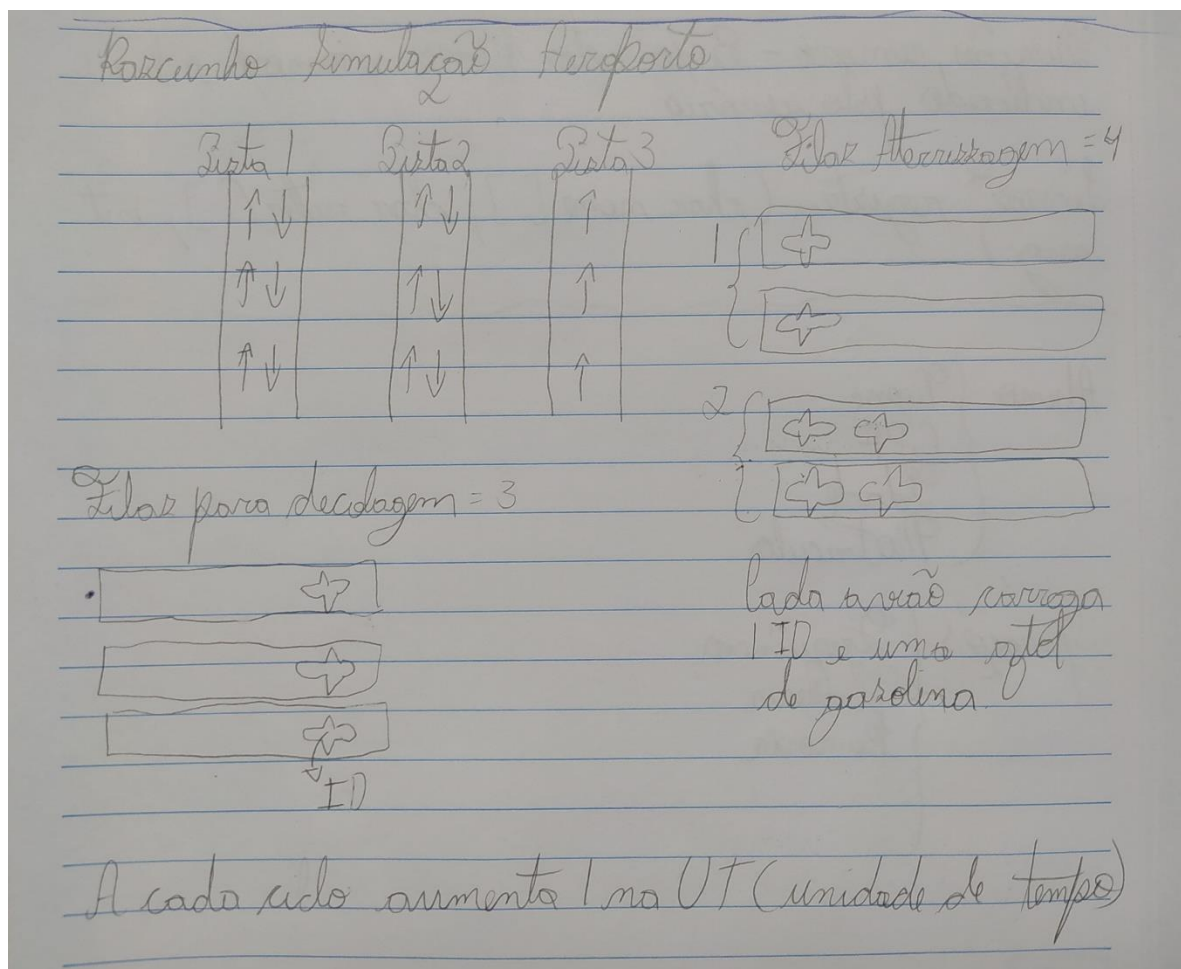 Rascunho Simulação Aeroporto
2
Pista 1 Pista 2 Pista 3
Filas Aterrissagem = 4
1
2
Filas para decolagem = 3
Cada avião carrega
1 ID e uma qtd
de gasolina
ID
A cada ciclo aumenta 1 na UT (unidade de tempo)